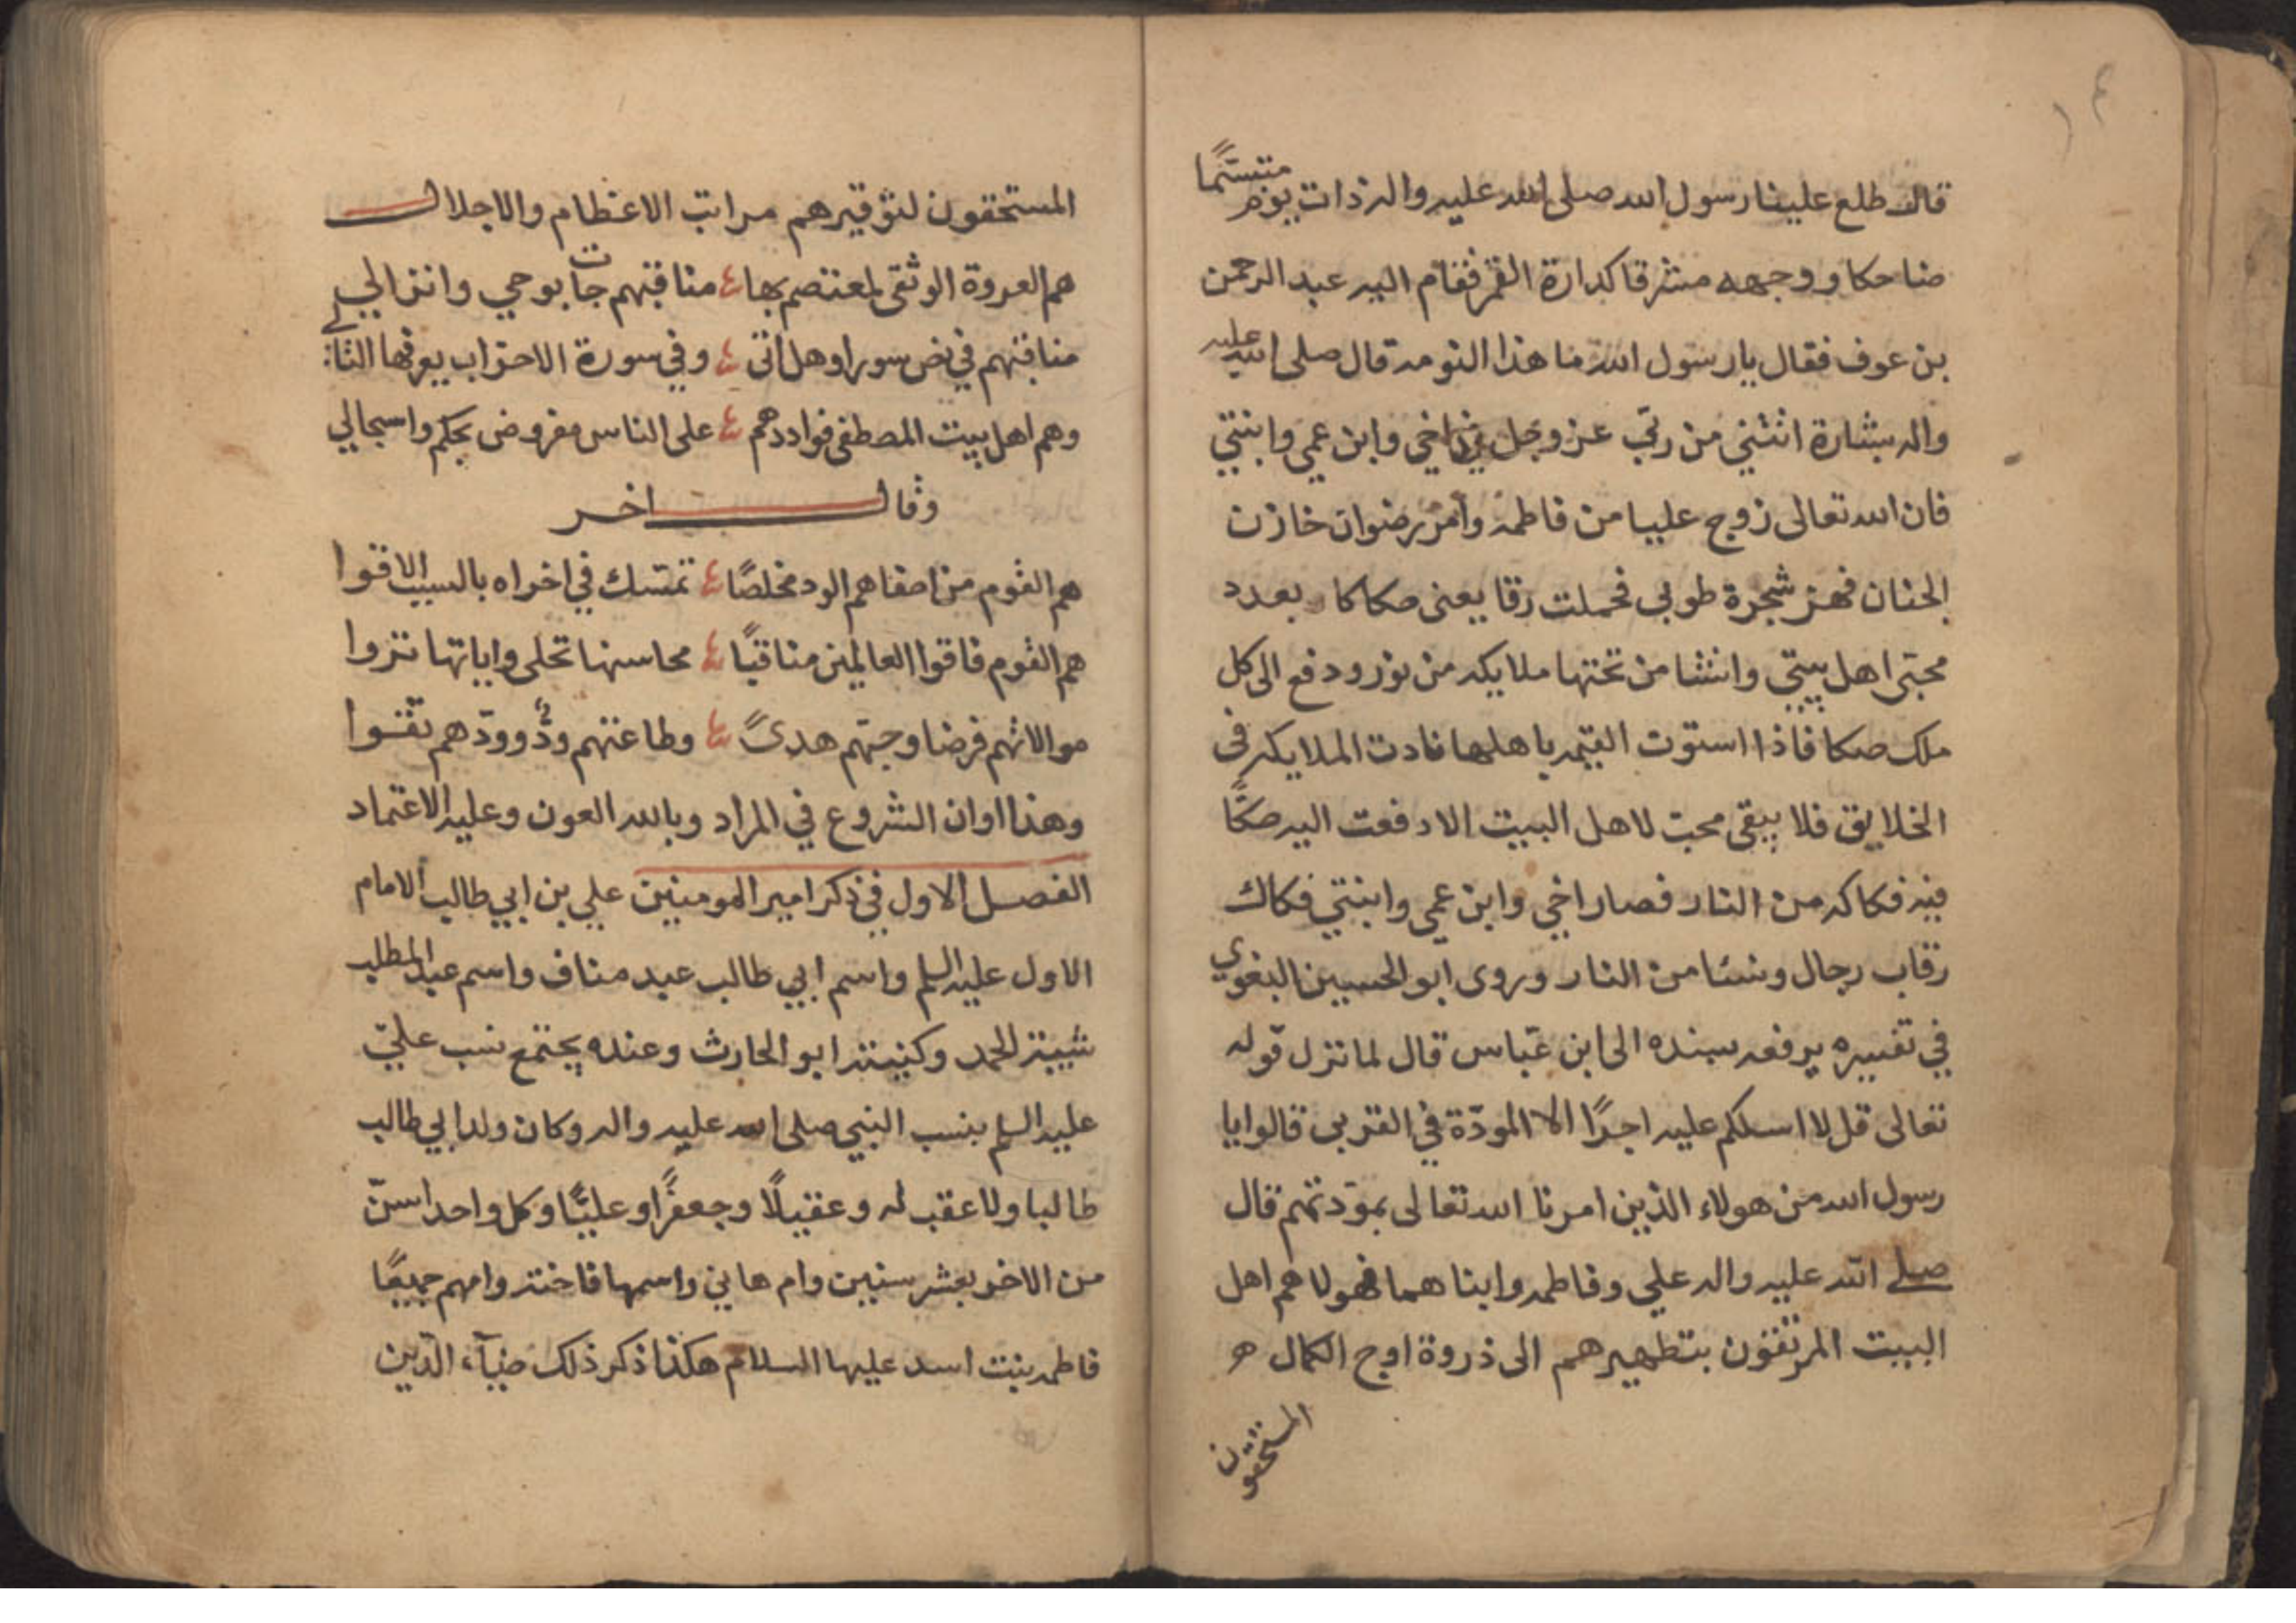 قال طلع علينا رسول الله صلى الله عليه واله ذات يوم متبسمًا
ضاحكا ووجهه مشرقا كدارة القمر فقام اليه عبد الرحمن
بن عوف فقال يا رسول الله ما هذا النور قال صلى الله عليه
واله بشارة اتتني من ربّي عز وجل في اخي وابن عمي وابنتي
فان الله تعالى زوج عليا من فاطمه وامر رضوان خازن
الجنان فهز شجرة طوبى فحملت رقا يعنى صكاكا بعدد
محبّى اهل بيتي وانشا من تحتها ملايكه من نور ودفع الى كل
ملك صكا فاذا استوت القيمه باهلها نادت الملايكه فى
الخلايق فلا يبقى محبّ لاهل البيت الا دفعت اليه صكًّا
فيه فكاكه من النار فصار اخي وابن عمي وابنتي فكاك
رقاب رجال ونسا من النار وروى ابو الحسين البغوي
في تفسيره يرفعه بسنده الى ابن عبّاس قال لما نزل قوله
تعالى قل لا اسلكم عليه اجرًا الا المودّة في القربى قالوا يا
رسول الله من هولاء الذين امرنا الله تعالى بمودتهم قال
صلى الله عليه واله علي وفاطمه وابناهما فهولا هم اهل
البيت المرتقون بتطهيرهم الى ذروة اوج الكمال ه
المستحقون
المستحقون لتوقيرهم مراتب الاعظام والاجلال
هم العروة الوثقى لمعتصم بها مناقبهم جات بوحي وانزالي
مناقبهم في نص سورا وهل اتى وفي سورة الاحزاب يعرفها التالي
وهم اهل بيت المصطفى فوادهم على الناس مفروض بحكم واسجالي
وقال اخر
هم القوم من اصفاهم الود مخلصًا تمسك في اخراه بالسبب الاقوا
هم القوم فاقوا العالمين مناقبًا محاسنها تجلى واياتها تروا
موالاتهم فرضا وحبّهم هدىً وطاعتهم ودّ وودّهم تقوا
وهذا اوان الشروع في المراد وبالله العون وعليه الاعتماد
الفصل الاول في ذكر امير المومنين علي بن ابي طالب الامام
الاول عليه السلم واسم ابي طالب عبد مناف واسم عبد المطلب
شيبة الحمد وكنيته ابو الحارث وعنده يجتمع نسب عليّ
عليه السلم بنسب النبي صلى الله عليه واله وكان ولد ابي طالب
طالبا ولا عقب له وعقيلًا وجعفرًا وعليًّا وكل واحد اسنّ
من الاخر بعشر سنين وام هاني واسمها فاخته وامهم جميعًا
فاطمه بنت اسد عليها السلام هكذا ذكر ذلك ضيآء الدّين